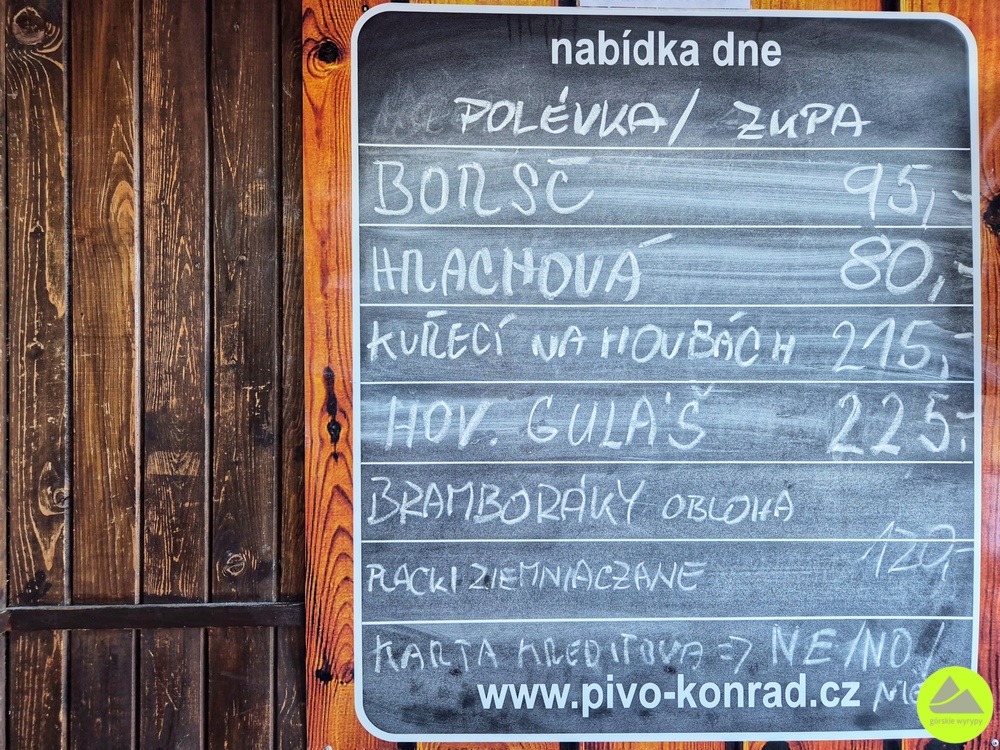 nabídka dne
POLÉVKA/ ZUPA
BORŠČ 95,-
HRACHOVÁ 80,-
KUŘECÍ NA HOUBÁCH 215,-
HOV. GULÁŠ 225,-
BRAMBORÁKY OBLOHA
120,-
PLACKI ZIEMNIACZANE
KARTA KREDITOVA => NE/NO/
www.pivo-konrad.cz NIE
górskie wyrypy